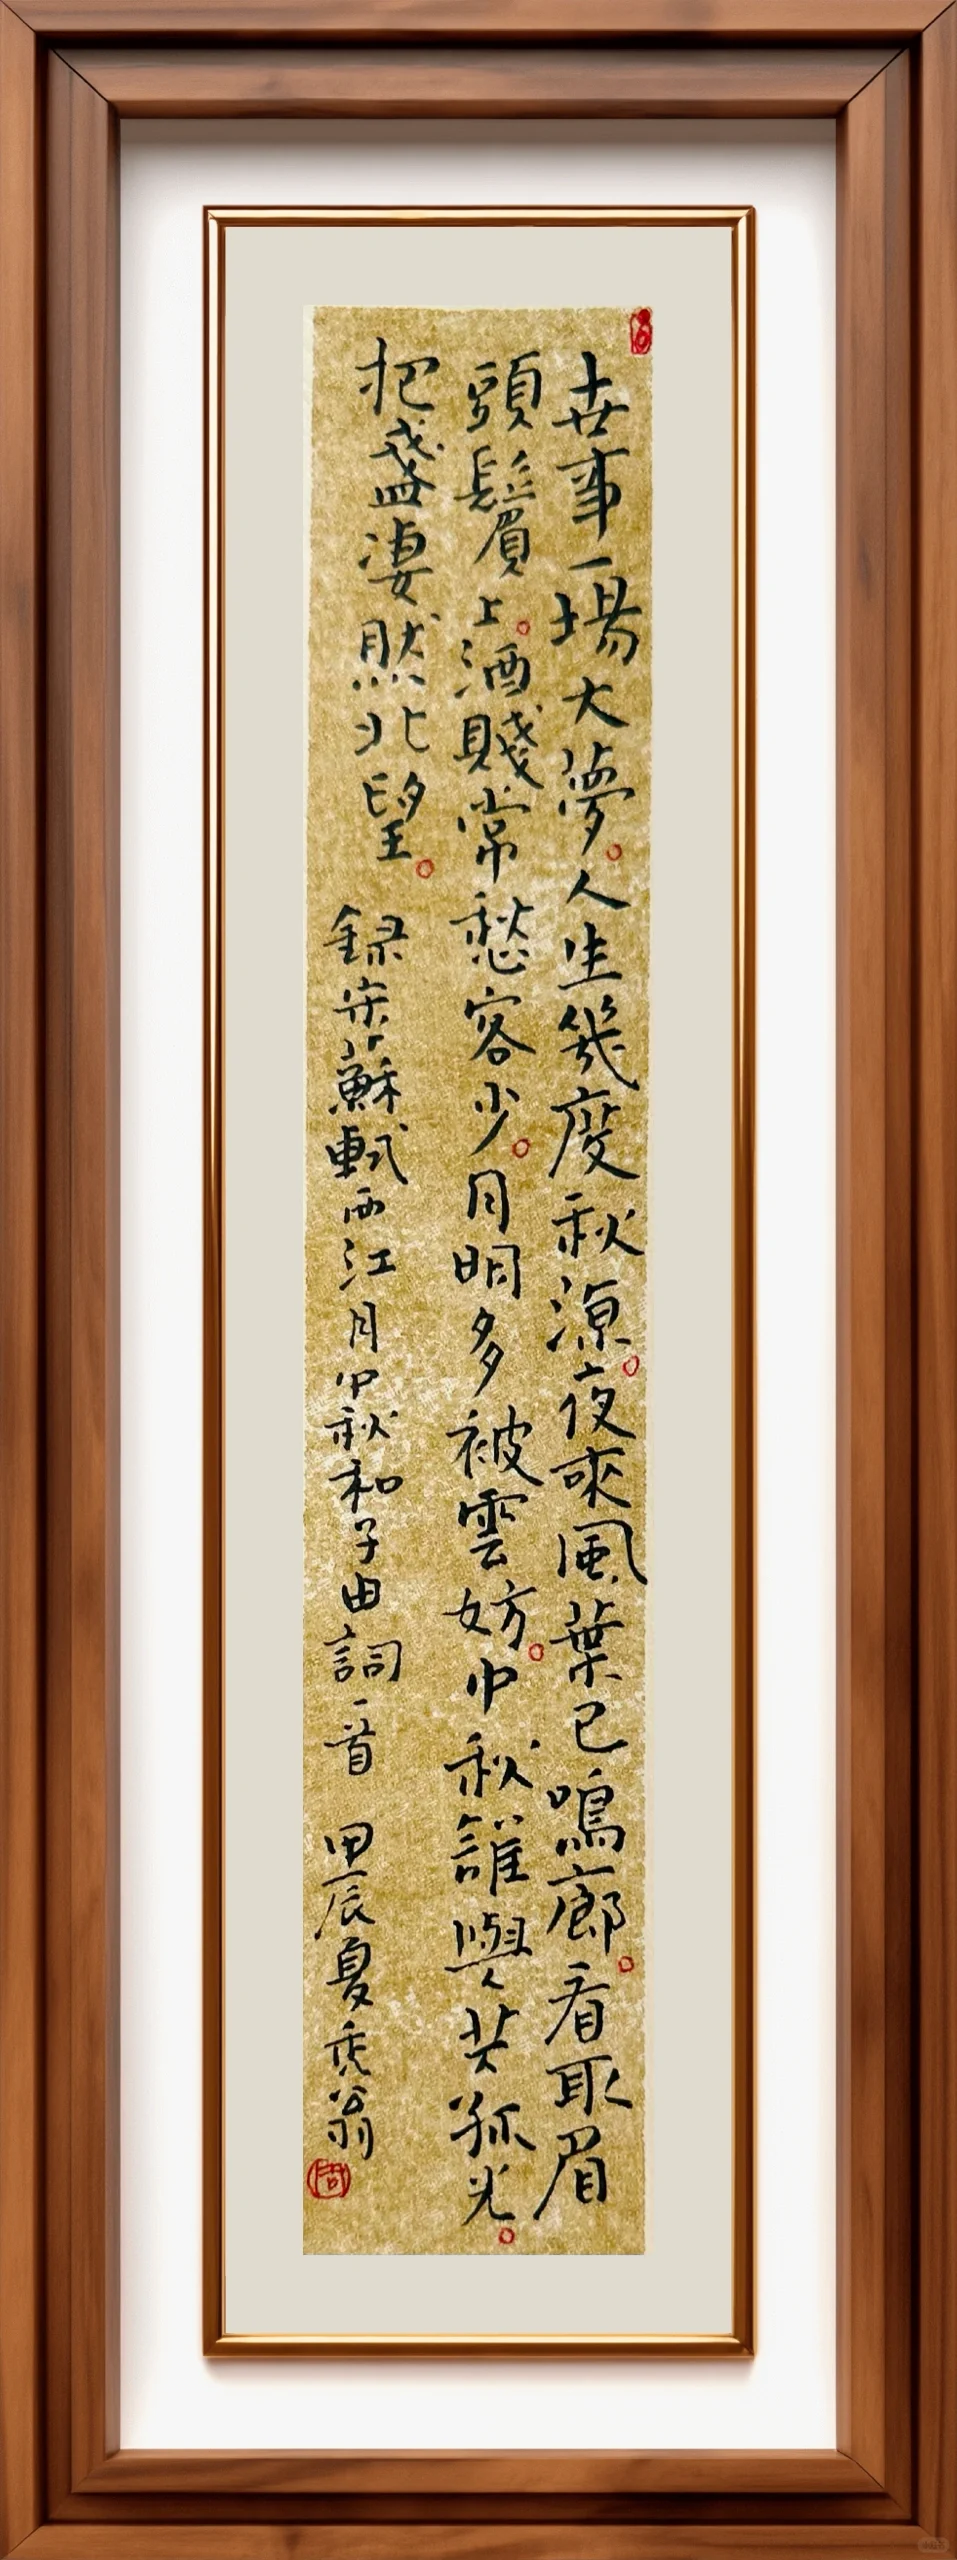 世事一場大夢。人生幾度秋涼。夜來風葉已鳴廊。看取眉
頭鬢上。酒賤常愁客少。月明多被雲妨。中秋誰與共孤光。
把盞淒然北望。錄宋蘇軾西江月中秋和子由詞一首 甲辰夏禿翁